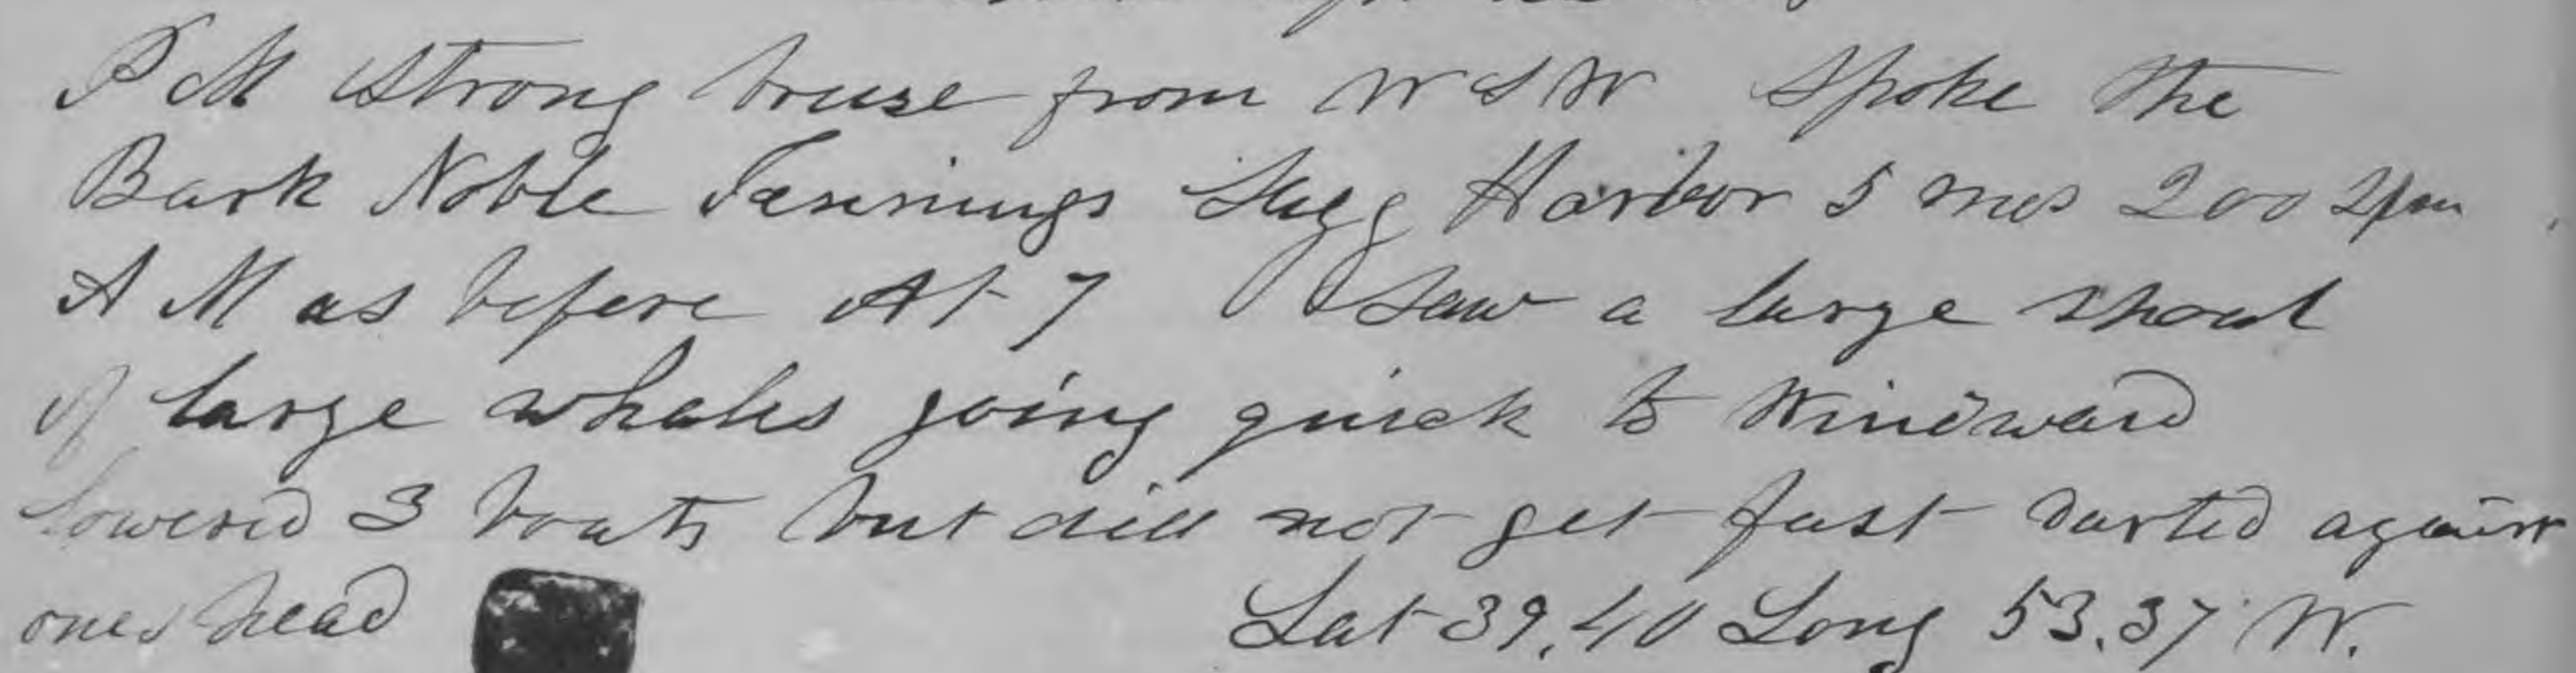 P M Strong breese from W S W Spoke the
Bark Noble Fannings Sagg Harbor 5 mos 200 Spm
A M as before At 7 Saw a large shoal
of large whales going quick to Windward
lowered 3 boats but did not get fast darted against
ones head
Lat 39.40 Long 53.37 W.